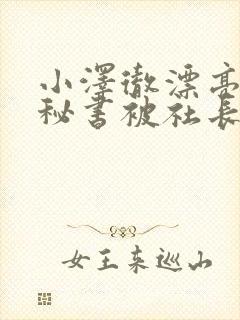 小澤徹漂亮
秘書被社長
女王来巡山